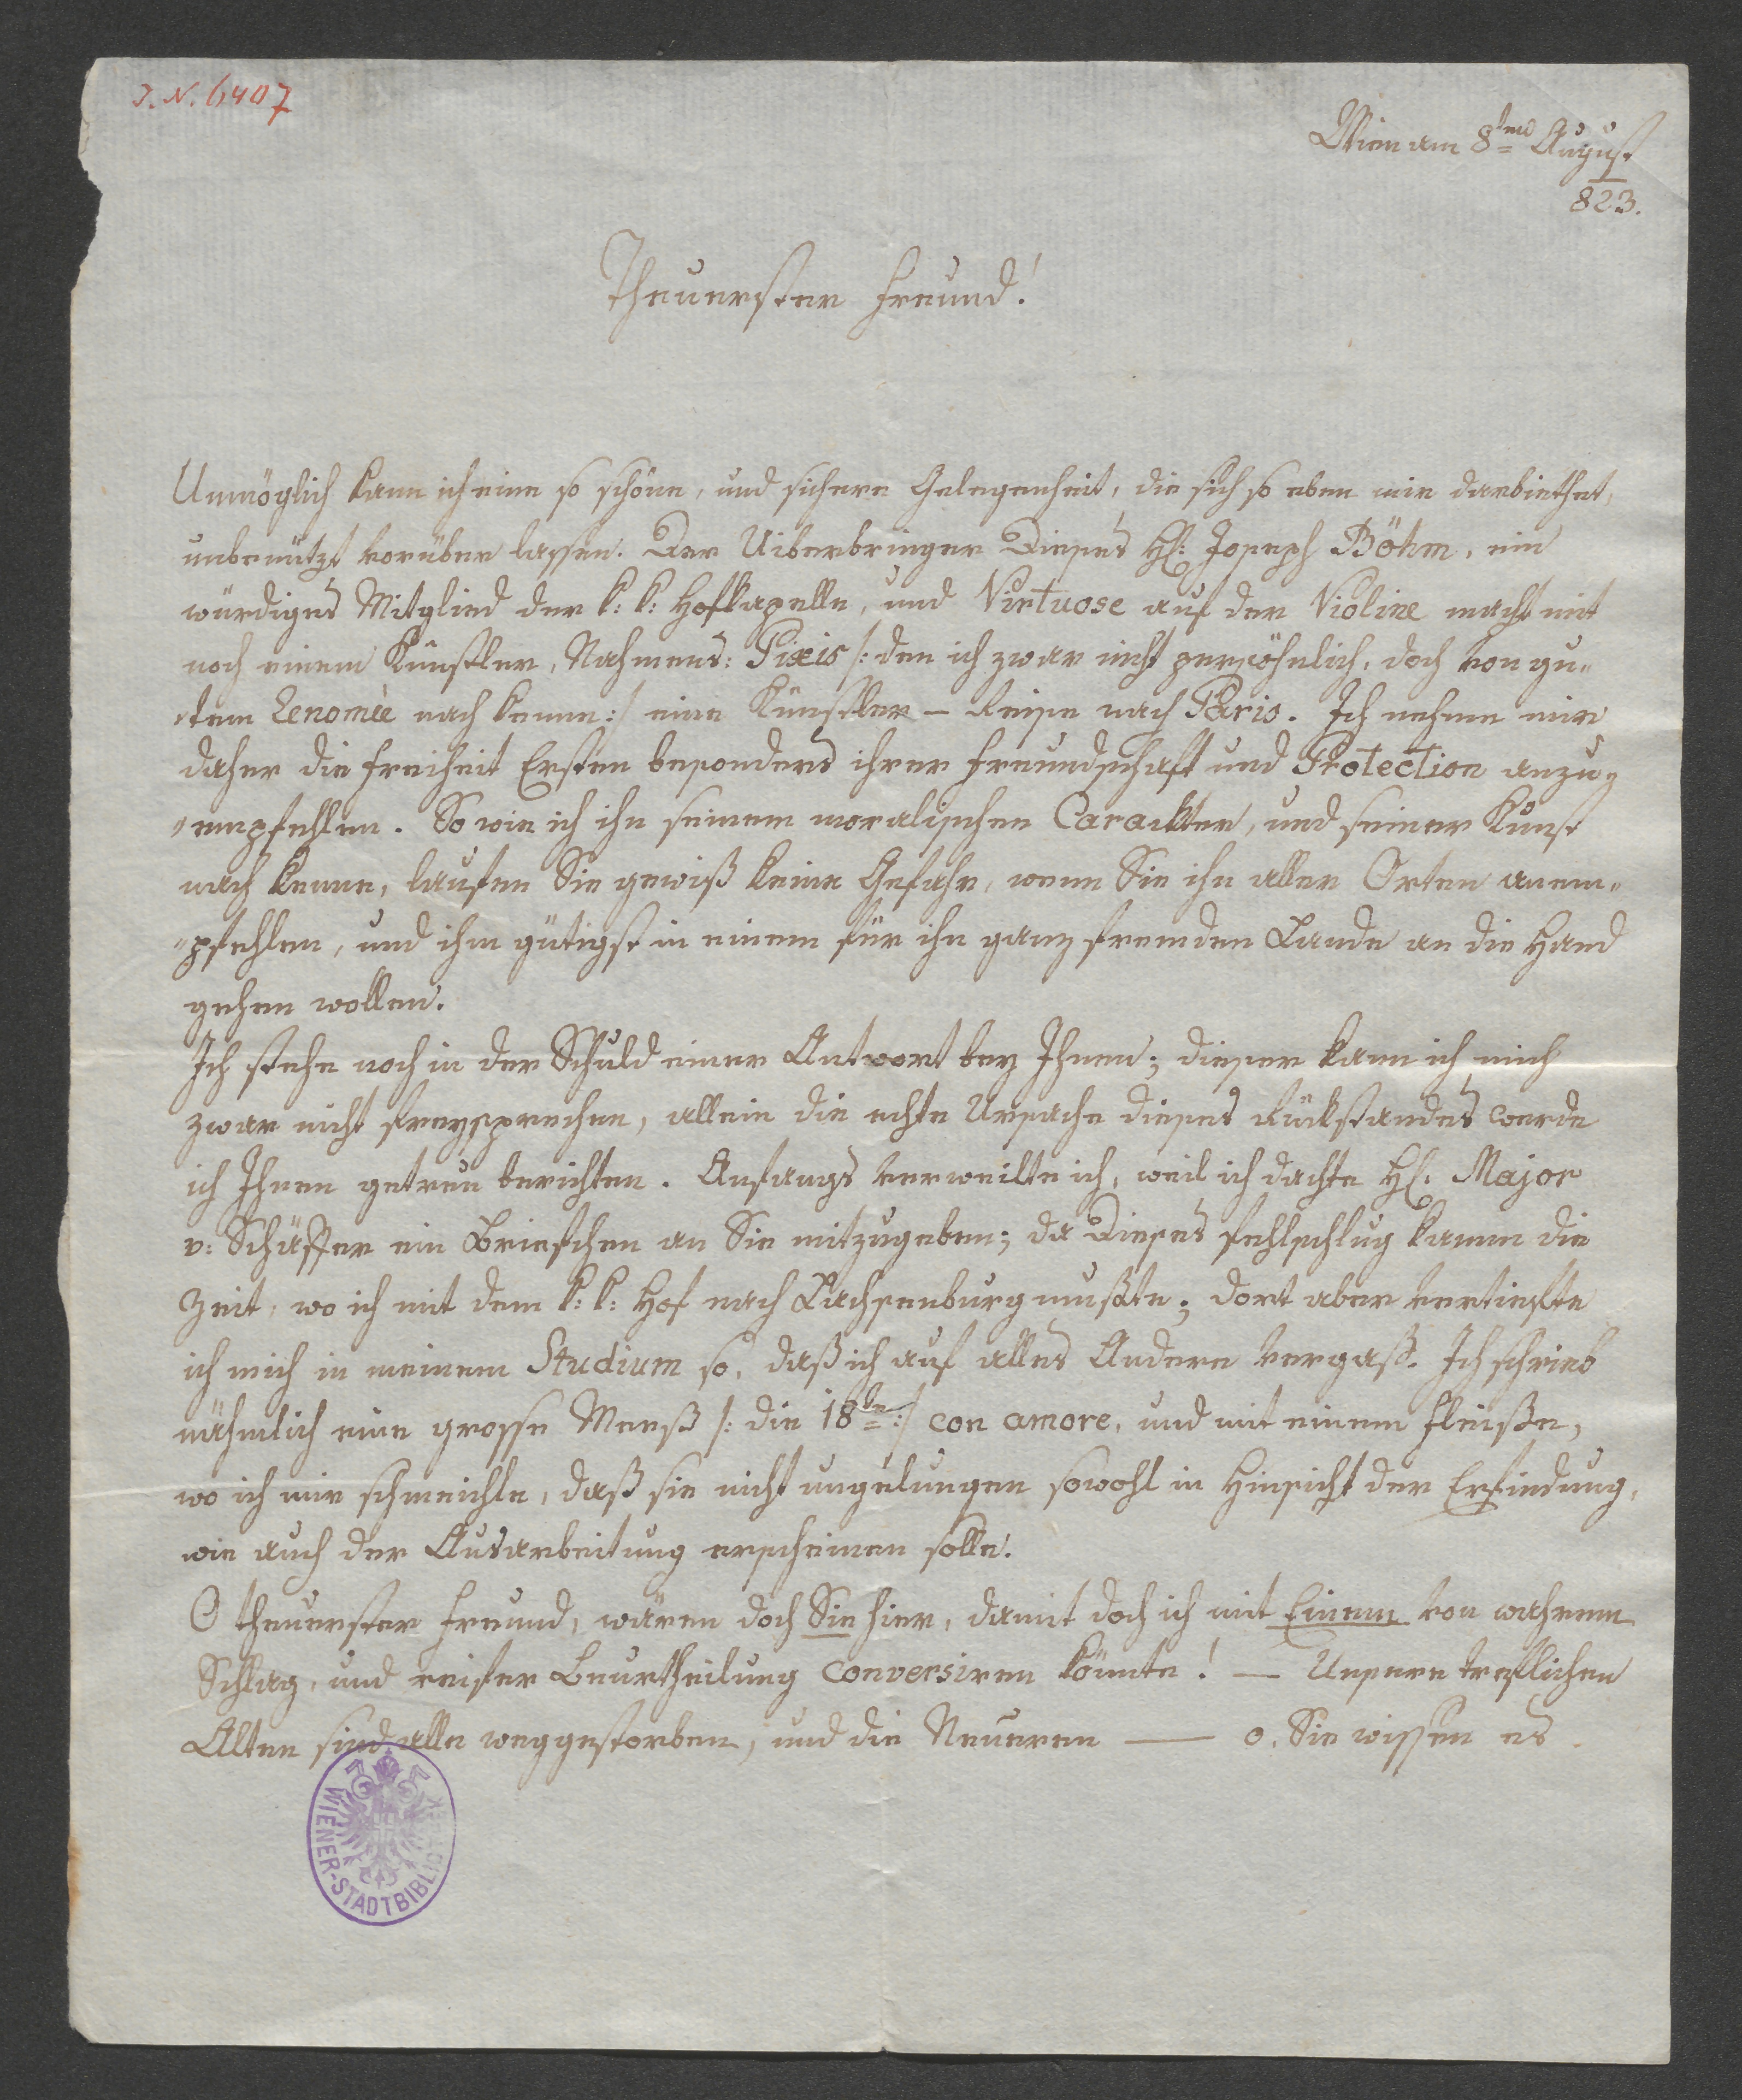 J. N. 6407
Wien am 8ten August
823.
Theuerster Freund!
Unmöglich kann ich eine so schöne, und sichere Gelegenheit, die sich so eben mir darbiethet,
unbenützt vorüber lassen. Der Uiberbringer Dieses H: Joseph Böhm, ein
würdiges Mitglied der k: k: Hofkapelle, und Virtuose auf der Violine macht mit
noch einem Künstler, Nahmens: Pixis /: den ich zwar nicht persöhnlich, doch von gu„
„tem Renomèe nach kenne :/ eine Künstler – Reise nach Paris. Ich nehme mir
daher die Freiheit Ersten besonders ihrer Freundschaft und Protection anzu„
„empfehlen. So wie ich ihn seinem moralischen Carackter, und seiner Kunst
nach kenne, laufen Sie gewiß keine Gefahr, wenn Sie ihn aller Orten anem„
„pfehlen, und ihm gütigst in einem für ihn ganz fremden Lande an die Hand
gehen wollen.
Ich stehe noch in der Schuld einer Antwort bey Ihnen; dieser kann ich mich
zwar nicht freysprechen, allein die echte Ursache dieses Rückstandes werde
ich Ihnen getreu berichten. Anfangs verweilte ich, weil ich dachte H: Major
v: Schäffer ein Briefchen an Sie mitzugeben; da Dieses fehlschlug kamm die
Zeit, wo ich mit dem k: k: Hof nach Lachsenburg mußte; dort aber vertiefte
ich mich in meinem Studium so, daß ich auf alles Andere vergaß. Ich schrieb
nähmlich eine grosse Meeß /: die 18te :/ con amore, und mit einem Fleiße,
wo ich mir schmeichle, daß sie nicht ungelungen sowohl in Hinsicht der Erfindung,
wie auch der Ausarbeitung erscheinen solle.
O theuerster Freund, wären doch Sie hier, damit doch ich mit Einem von wahrem
Schlag, und reifer Beurtheilung conversiren könnte! — Unsere treflichen
Alten sind alle weggestorben, und die Neueren —— o, Sie wissen es.
WIENER-STADTBIBLIOTHEK